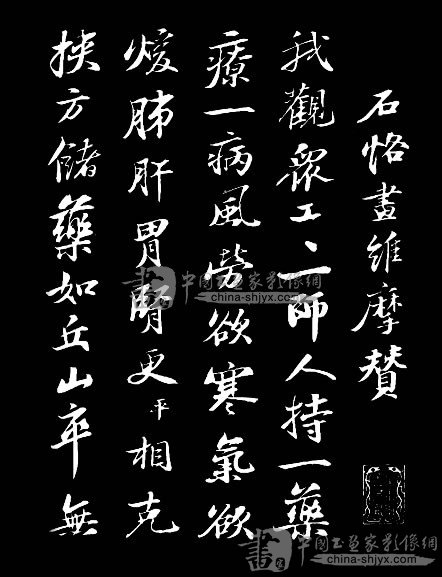 石恪畫維摩贊
我觀衆工〻一師人持一藥
療一病風勞欲寒氣欲
煖肺肝胃腎更平相克
挾方儲藥如丘山卒無
中國书画家影像網
china-shjyx.com
中國书画家影像網
www.china-shjyx.com